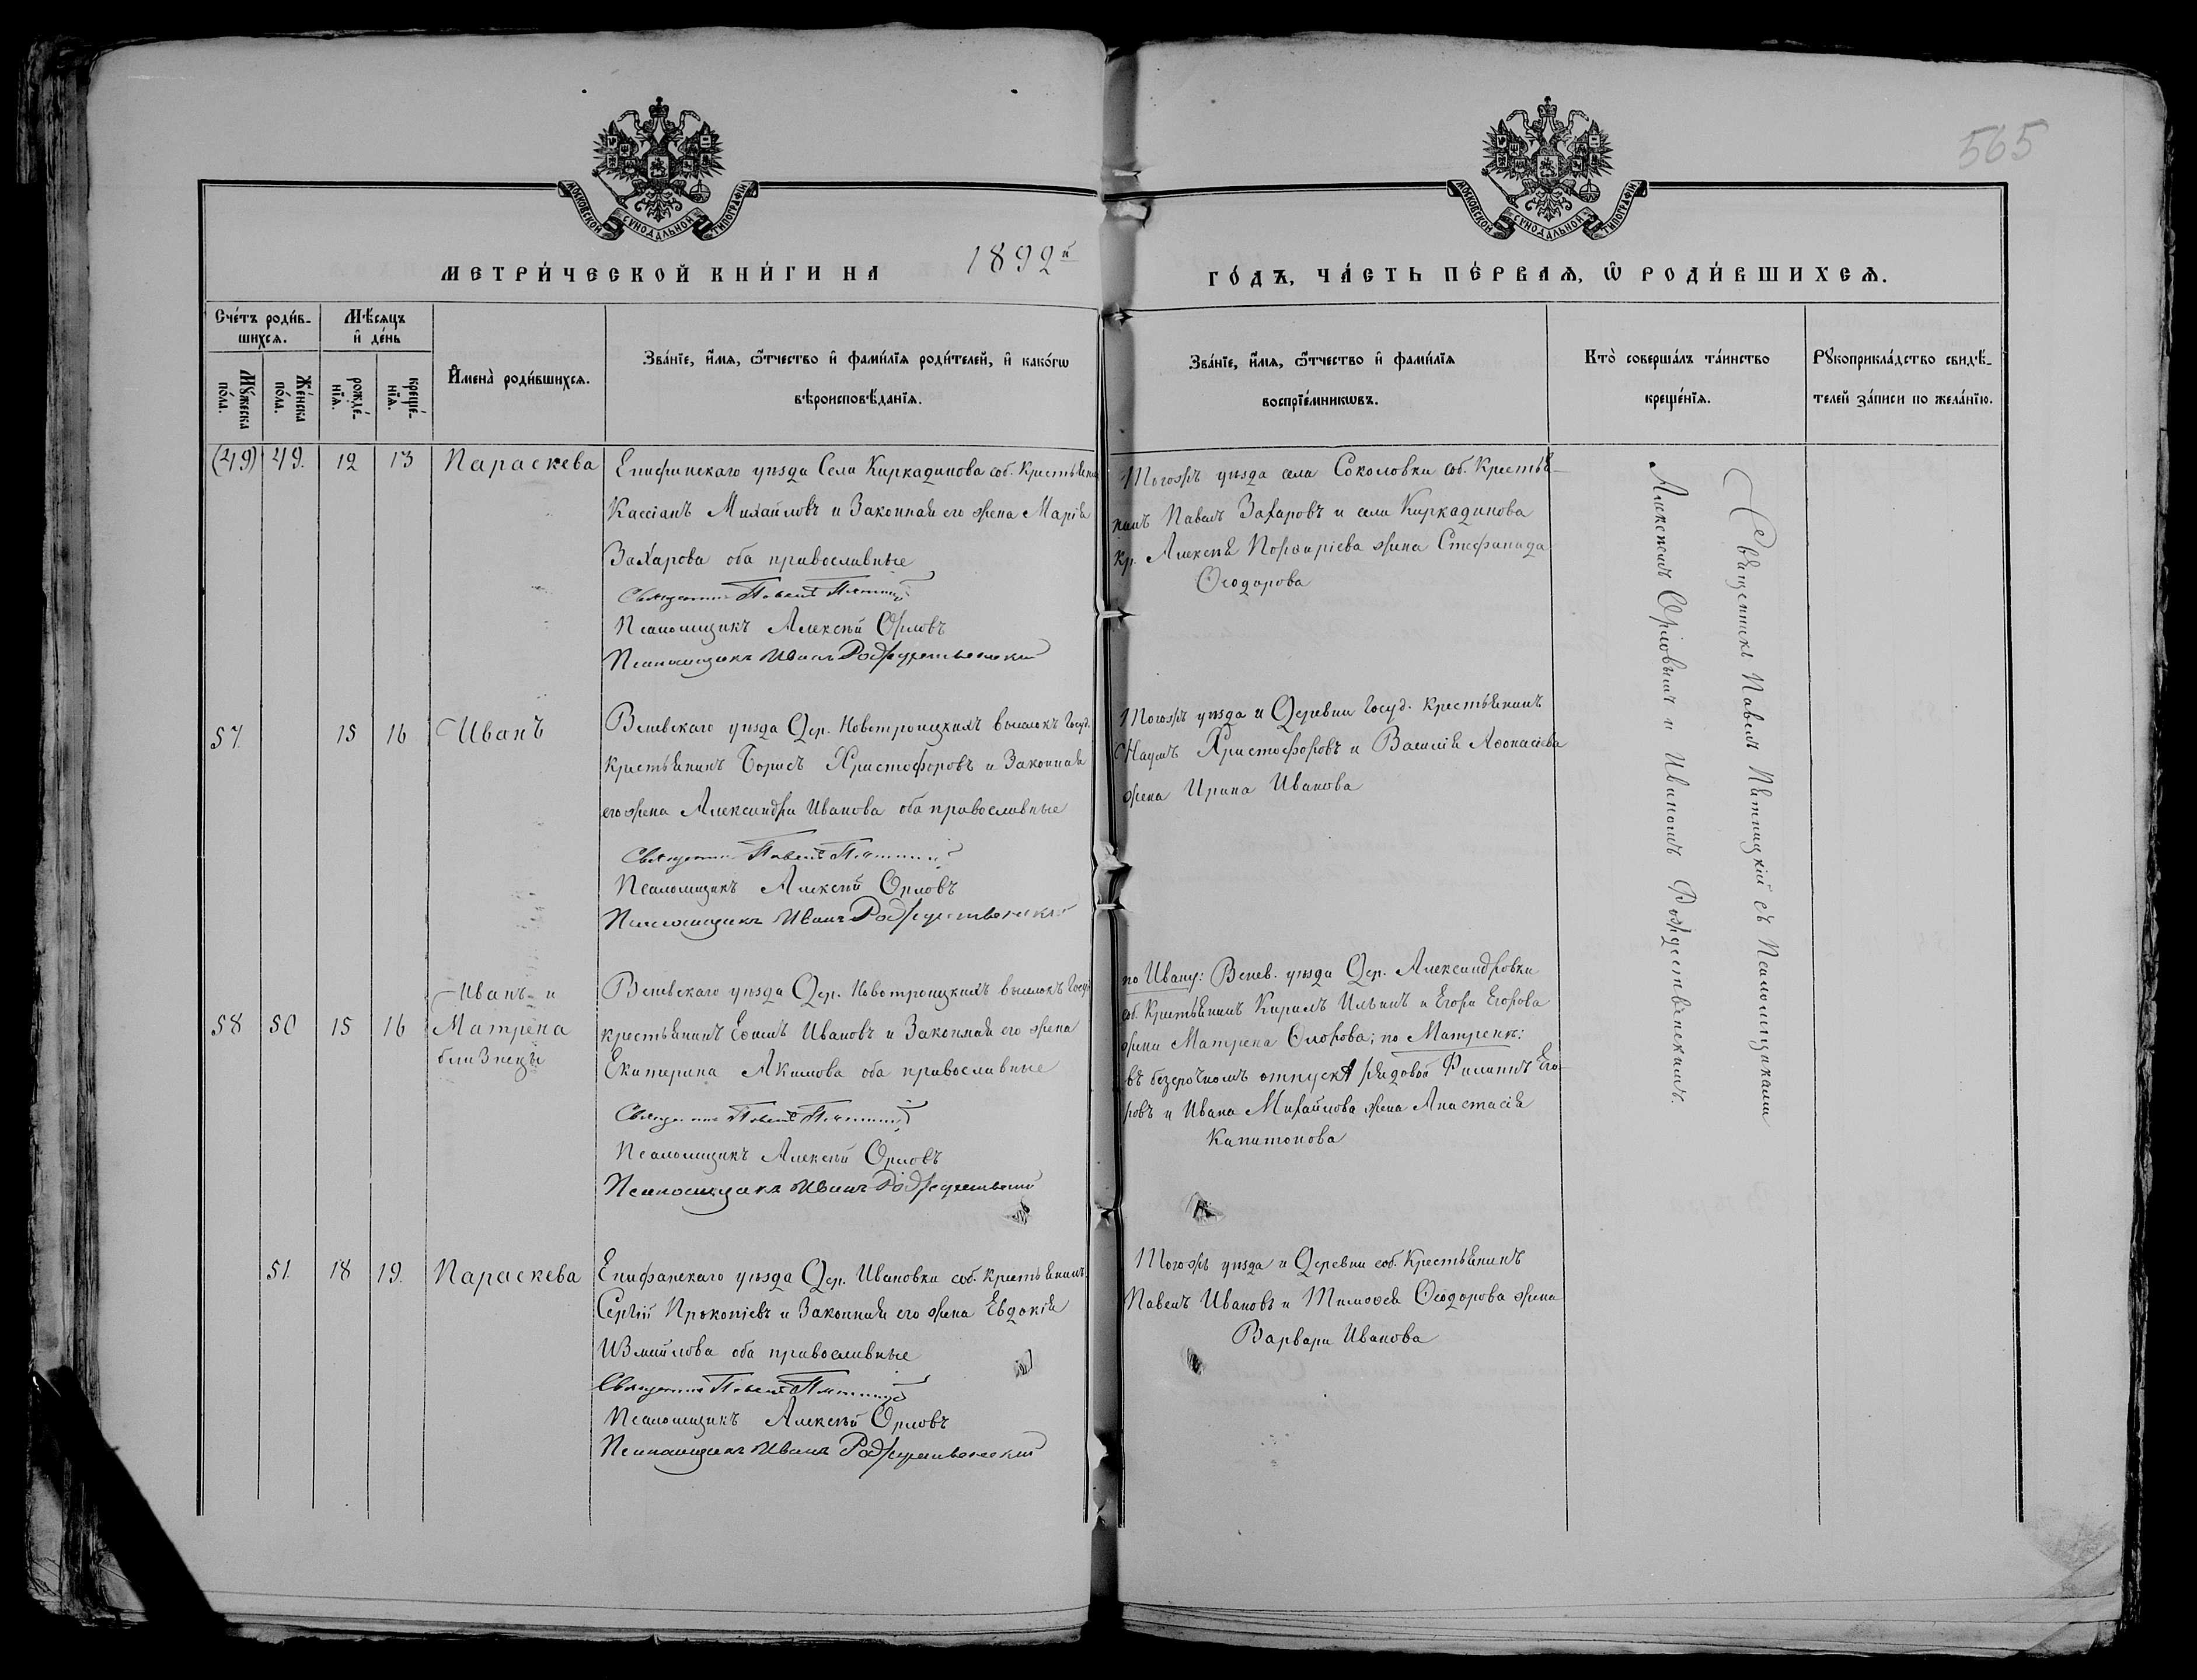 565
МОСКОВСКОЙ СѴНОДАЛЬНОЙ ТИПОГРАФІИ.
МОСКОВСКОЙ СѴНОДАЛЬНОЙ ТИПОГРАФІИ.
МЕТРИ́ЧЕСКОЙ КНИ́ГИ НА 1892й
ГО́ДЪ, ЧА́СТЬ ПЕ́РВАѦ, Ѿ РОДИ́ВШИХСѦ.
Сче́тъ роди́в-
шихсѧ.
Мꙋ́жеска
по́ла.
Же́нска
по́ла.
Мѣ́сѧцъ
и҆ де́нь
рожде́-
нїѧ.
креще́-
нїѧ.
И҆мена̀ роди́вшихсѧ.
Зва́нїе, и҆́мѧ, ѻ҆́тчество и҆ фами́лїѧ роди́телей, и҆ како́гѡ
вѣроисповѣ́данїѧ.
Зва́нїе, и҆́мѧ, ѻ҆́тчество и҆ фами́лїѧ
воспрїе́мникѡвъ.
Кто̀ соверша́лъ та́инство
креще́нїѧ.
Рꙋкоприкла́дство свидѣ́-
телей за́писи по жела́нїю.
(49) 49. 12 13 Параскева
Епифанскаго уѣзда Села Киркадинова соб. Крестьянинъ
Кассіанъ Михайловъ и Законная его жена Марія
Захарова оба православные
Священникъ Павелъ Пятницкій
Псаломщикъ Алексѣй Орловъ
Псаломщикъ Иванъ Рождественскій
Тогожъ уѣзда села Соколовки соб. Крестья-
нинъ Павелъ Захаровъ и села Киркадинова
кр. Алексѣя Порфиріева жена Стефанида
Ѳеодорова
57. 15 16 Иванъ
Веневскаго уѣзда Дер. Новотроицкихъ выселокъ Госуд.
крестьянинъ Борисъ Христофоровъ и Законная
его жена Александра Иванова оба православные
Священникъ Павелъ Пятницкій
Псаломщикъ Алексѣй Орловъ
Псаломщикъ Иванъ Рождественскій
Тогожъ уѣзда и Деревни Госуд. крестьянинъ
Наумъ Христофоровъ и Василія Аѳонасіева
жена Ирина Иванова
58 50 15 16 Иванъ и
Матрена
близнецы
Веневскаго уѣзда Дер. Новотроицкихъ выселокъ Госуд
крестьянинъ Еѳимъ Ивановъ и Законная его жена
Екатерина Акимова оба православные
Священникъ Павелъ Пятницкій
Псаломщикъ Алексѣй Орловъ
Псаломщикъ Иванъ Рождественскій
по Ивану: Венев. уѣзда Дер. Александровки
соб. Крестьянинъ Кирилъ Ильинъ и Егора Егорова
жена Матрена ; по Матренѣ:
въ безсрочномъ отпускѣ рядовой Филиппъ Его-
ровъ и Ивана Михайлова жена Анастасія
Капитонова
51. 18 19. Параскева
Епифанскаго уѣзда Дер. Ивановки соб. крестьянинъ
Сергій Прокопіевъ и Законная его жена Евдокія
Измайлова оба православные
Священникъ Павелъ Пятницкій
Псаломщикъ Алексѣй Орловъ
Псаломщикъ Иванъ Рождественскій
Тогожъ уѣзда и Деревни соб. Крестьянинъ
Павелъ Ивановъ и Тимоѳея Ѳеодорова жена
Варвара Иванова
Священникъ Павелъ Пятницкій съ Псаломщиками
Алексѣемъ Орловымъ и Иваномъ Рождественскимъ.